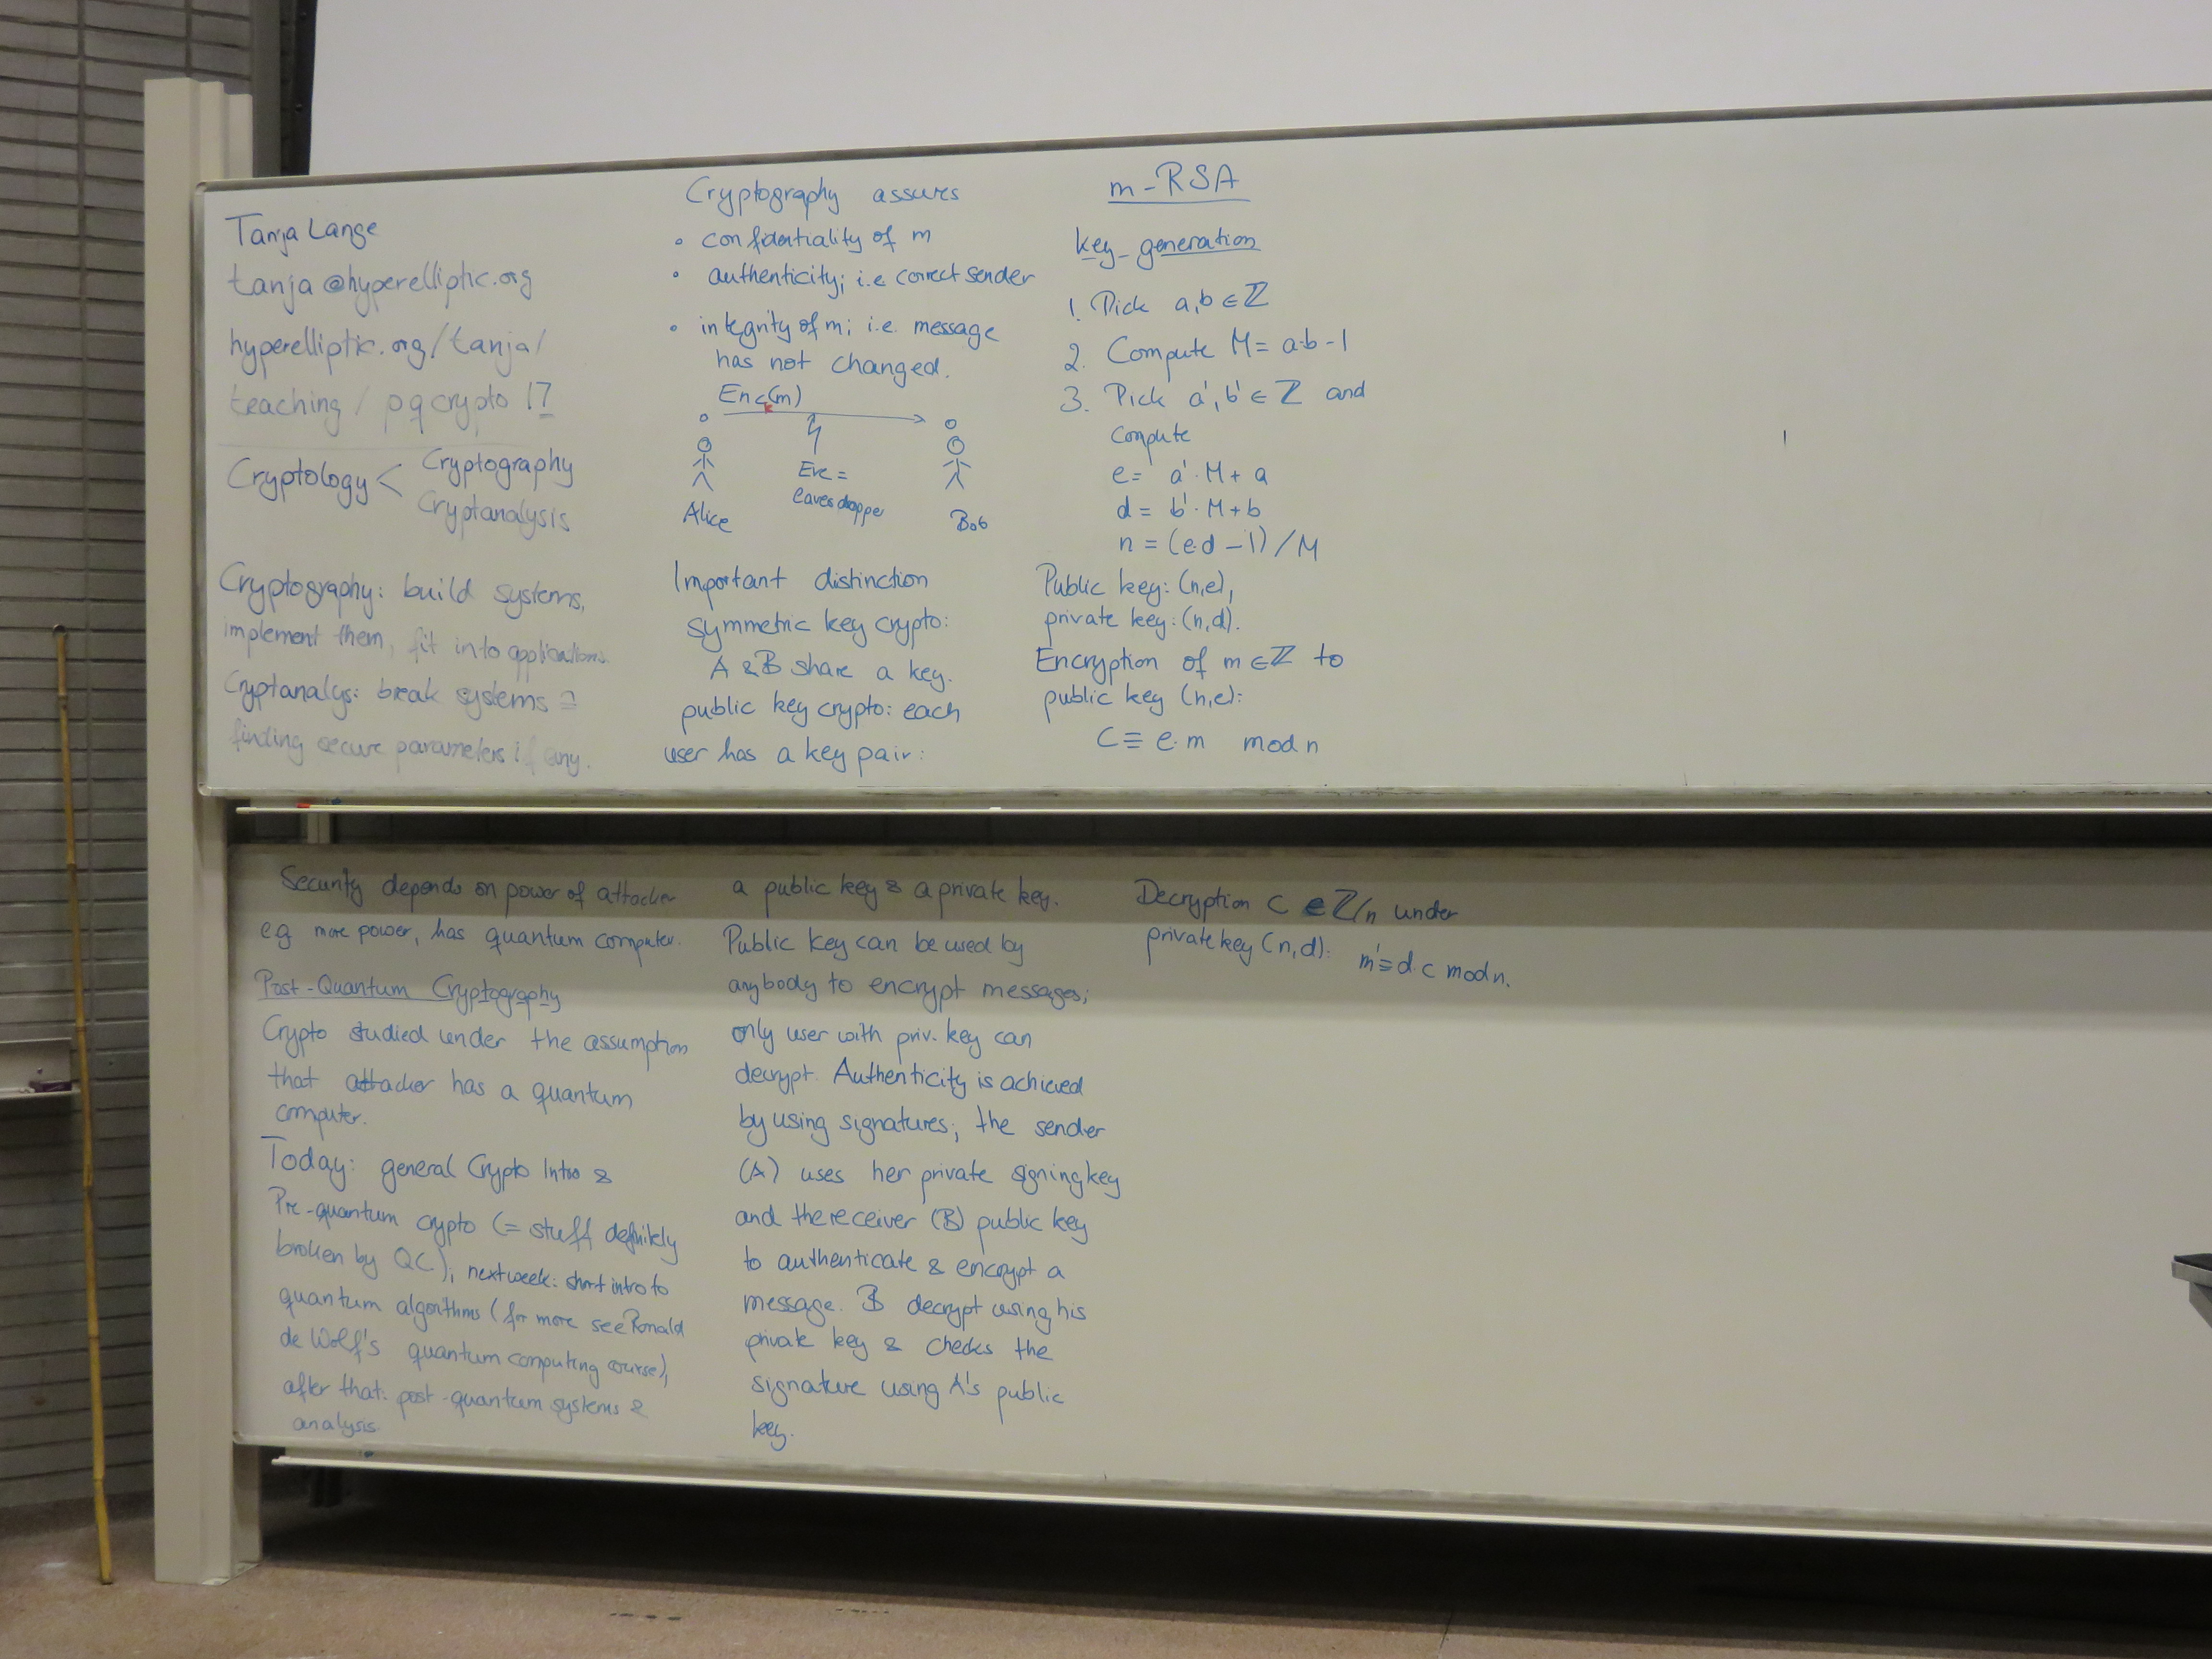 Tanja Lange
tanja@hyperelliptic.org
hyperelliptic.org/tanja/
teaching/pqcrypto17
Cryptology < Cryptography
Cryptanalysis
Cryptography: build systems,
implement them, fit into applications.
Cryptanalys: break systems =
finding secure parameters if any.
Cryptography assures
• confidentiality of m
• authenticity; i.e correct sender
• integrity of m; i.e. message
has not changed.
Enc(m)
Eve =
eavesdropper
Alice
Bob
Important distinction
symmetric key crypto:
A & B share a key.
public key crypto: each
user has a key pair:
m-RSA
key-generation
1. Pick a,b ∈ ℤ
2. Compute M = a·b - 1
3. Pick a', b' ∈ ℤ and
compute
e = a'·M + a
d = b'·M + b
n = (e·d - 1)/M
Public key: (n,e),
private key: (n,d).
Encryption of m ∈ ℤ to
public key (n,e):
C ≡ e·m mod n
Security depends on power of attacker
eg more power, has quantum computer.
Post-Quantum Cryptography
Crypto studied under the assumption
that attacker has a quantum
computer.
Today: general Crypto Intro &
Pre-quantum crypto (= stuff definitely
broken by QC); next week: short intro to
quantum algorithms (for more see Ronald
de Wolf's quantum computing course),
after that: post-quantum systems &
analysis.
a public key & a private key.
Public key can be used by
anybody to encrypt messages;
only user with priv. key can
decrypt. Authenticity is achieved
by using signatures; the sender
(A) uses her private signing key
and the receiver (B) public key
to authenticate & encrypt a
message. B decrypt using his
private key & checks the
signature using A's public
key.
Decryption C ∈ ℤ/n under
private key (n,d): m' ≡ d·c mod n.